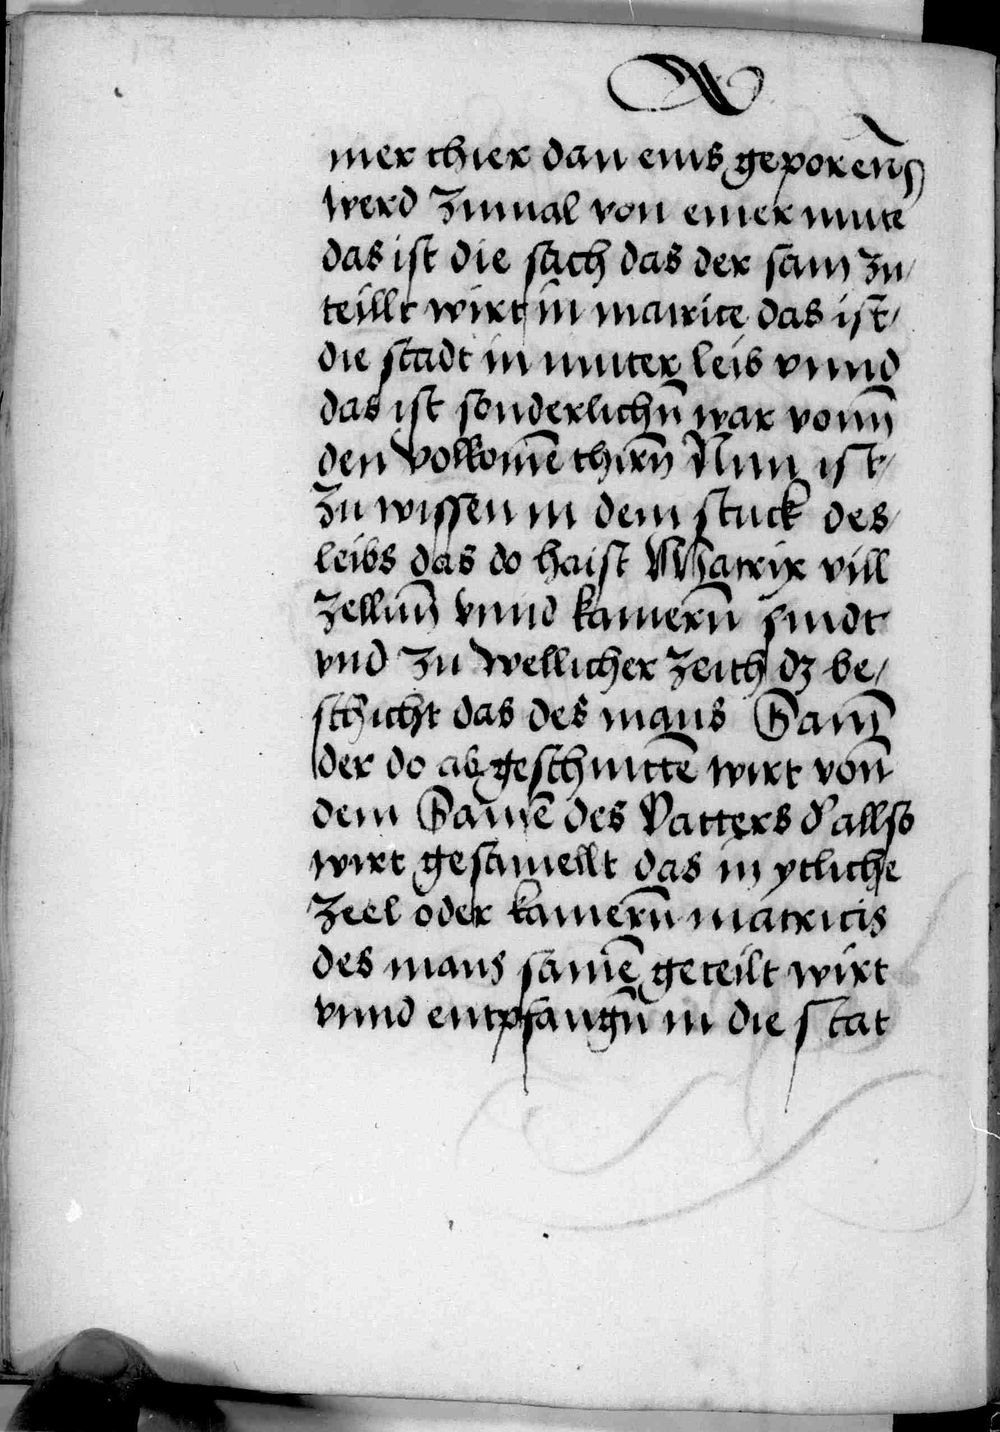 mer thier dan eins geporenn
werd zumal von einer mute
das ist die sach das der sam zu/
teillt wirt in matrice das ist/
die stadt in muter leib vnnd
das ist sonderlichn̄ war vonn̄
den volkomē thirn̄ Nun ist/
zu wissen in dem stuck des/
leibs das do haist Matrix vill
zellnn̄ vnnd kamern̄ sindt
vnd zu wellicher zeith dz be/
schicht das des mans Sam̄
der do abgeschnittē wirt von̄
dem Samē des Vatters d' allso
wirt gesamellt das in ytliche
zeel oder kamern̄ matricis
des mans samē geteilt wirt
vnnd entpfangn̄ in die stat